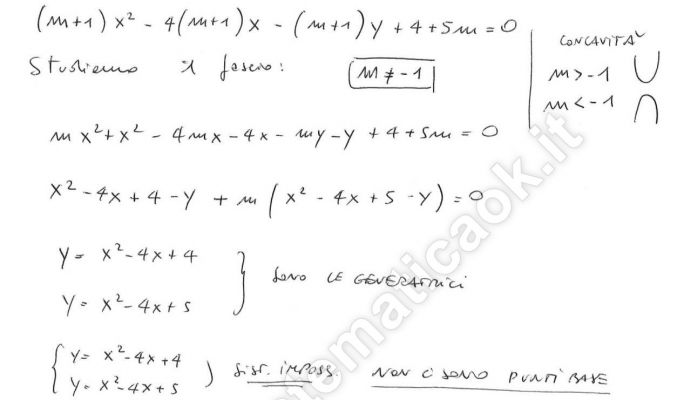 (m+1) x² - 4(m+1)x - (m+1) y + 4 + 5m = 0
Studiamo il fascio: m ≠ -1
CONCAVITÀ
m > -1 ∪
m < -1 ∩
m x² + x² - 4mx - 4x - my - y + 4 + 5m = 0
x² - 4x + 4 - y + m (x² - 4x + 5 - y) = 0
y = x² - 4x + 4
y = x² - 4x + 5 } sono le GENERATRICI
{ y = x² - 4x + 4
y = x² - 4x + 5 ) Sist. IMPOSS. NON CI SONO PUNTI BASE
matematicaok.it